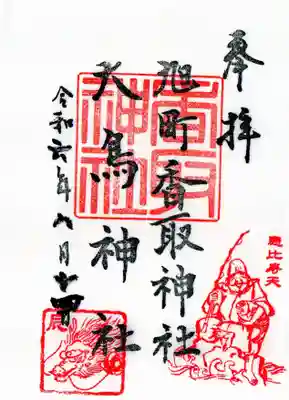 奉拝
旭町香取神社
大鳥神社
令和六年八月十四日
香取神社
恵比寿天